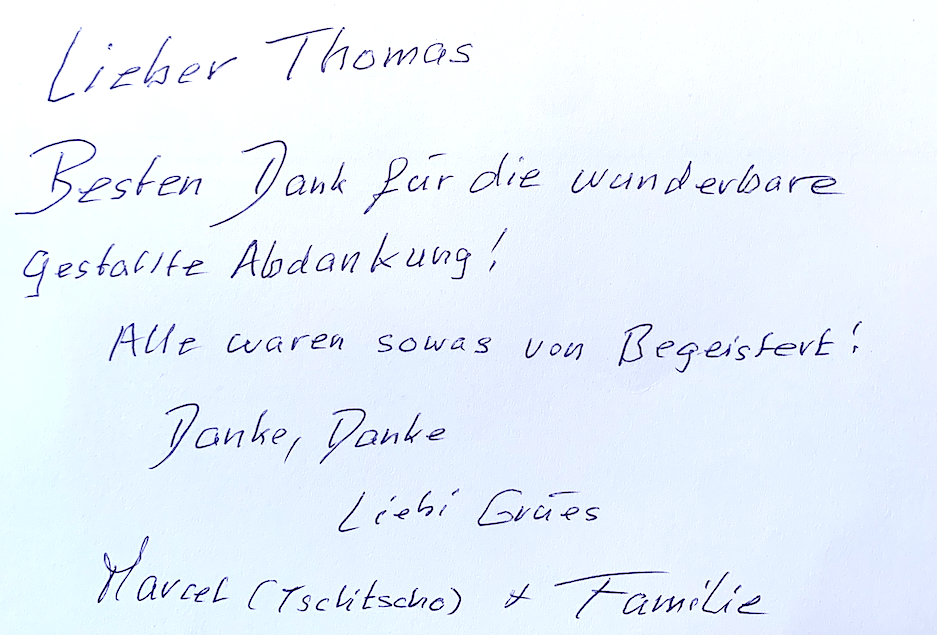 Lieber Thomas
Besten Dank für die wunderbare
gestallte Abdankung!
Alle waren sowas von Begeistert!
Danke, Danke
Liebi Grües
Marcel (Tschitscho) + Familie